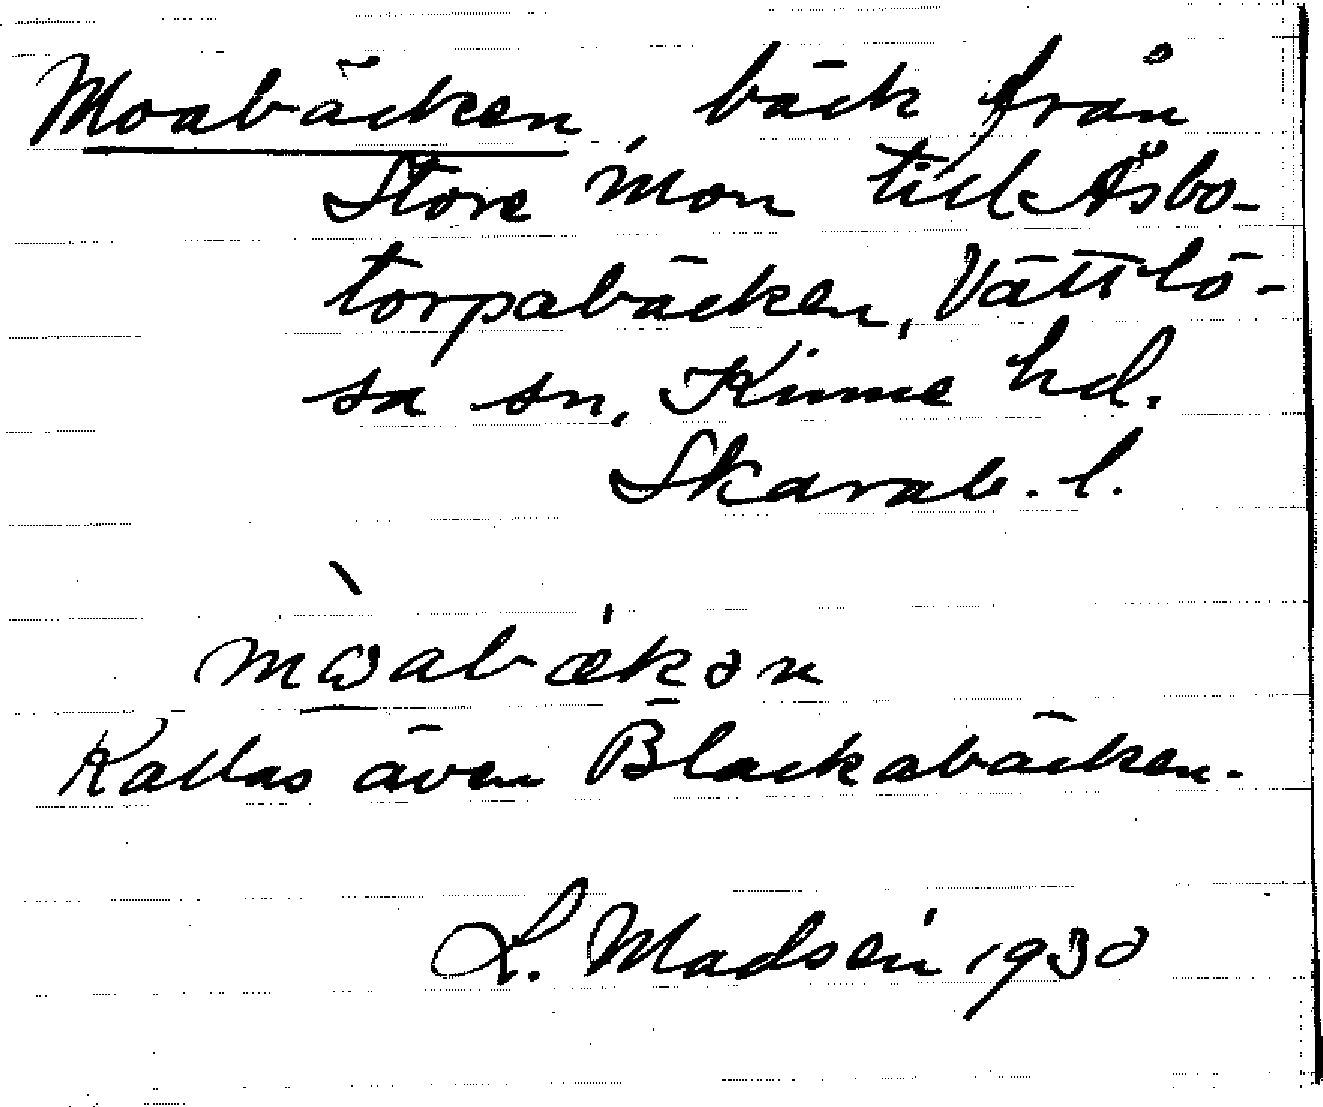 Moabäcken, bäck från
Store Mon till Åsbo-
torpabäcken, Vättlö-
sa sn, Kinne hd.
Skarab. l.
mωabækən
Kallas även Blackabäcken.
L. Madsén 1930